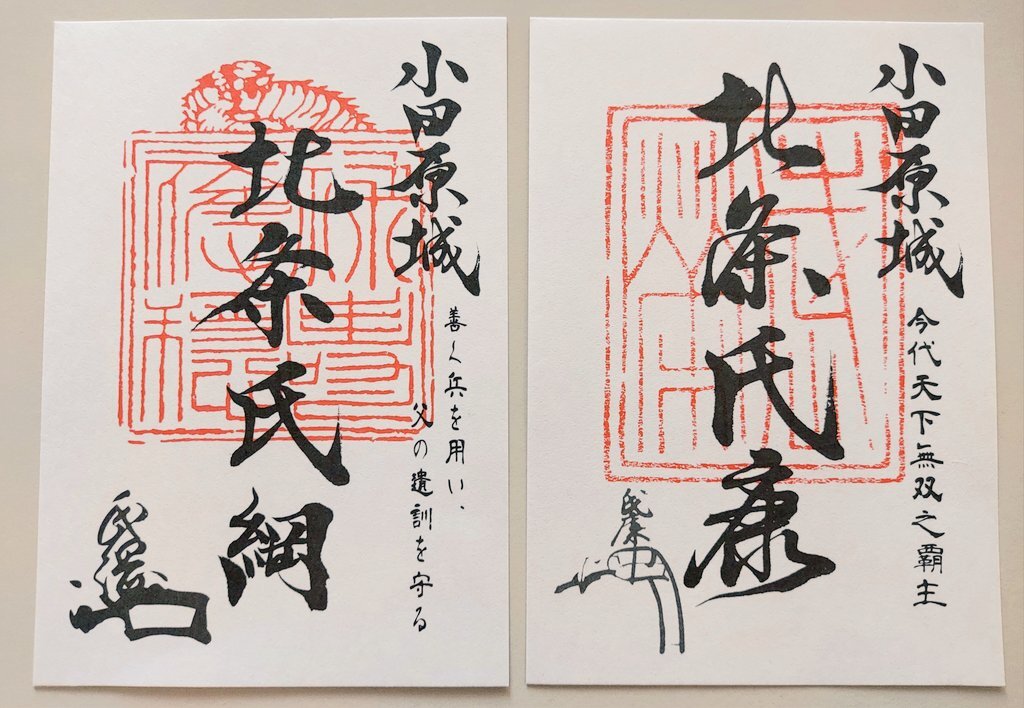 小田原城
善く兵を用い、
父の遺訓を守る
北条氏綱
氏綱
小田原城
今代天下無双之覇主
北条氏康
氏康